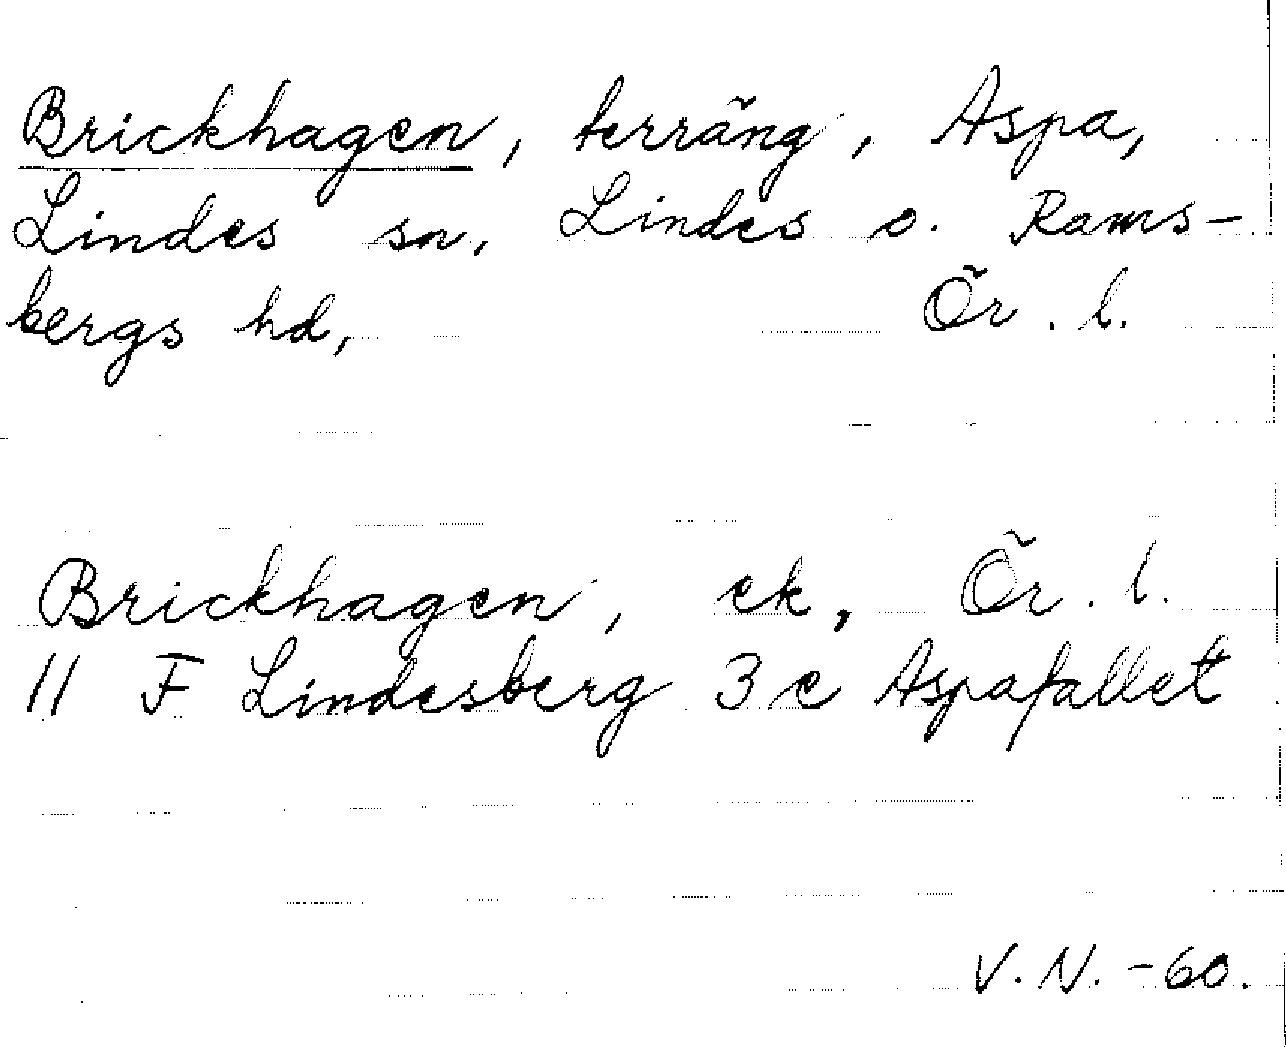 Brickhagen, terräng, Aspa,
Lindes sn, Lindes o. Rams-
bergs hd, Ör. l.
Brickhagen, ek, Ör. l.
11 F Lindesberg 3 c Aspafallet
V. N. -60.